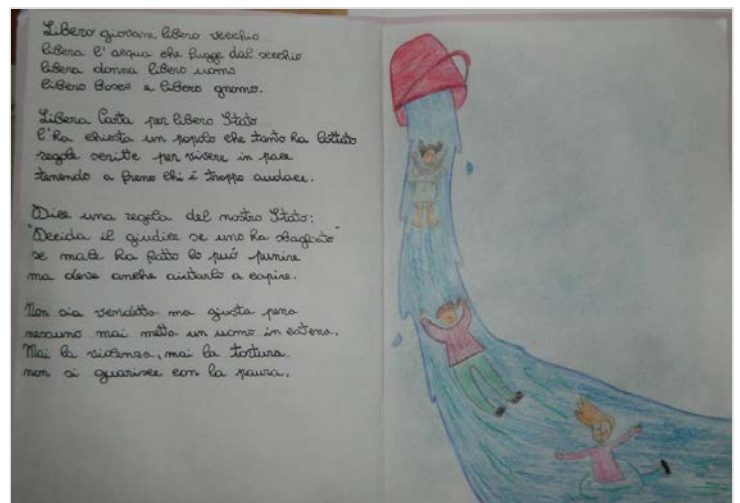 Libero giovane libero vecchio
libera l'acqua che fugge dal secchio
libera donna libero uomo
libero boxer e libero gnomo.
Libera Carta per libero Stato
l'ha chiesta un popolo che tanto ha lottato
regole scritte per vivere in pace
tenendo a freno chi è troppo audace.
Dice una regola del nostro Stato:
"Decida il giudice se uno ha sbagliato"
se male ha fatto lo può punire
ma deve anche aiutarlo a capire.
Non sia vendetta ma giusta pena
nessuno mai metta un uomo in catena.
Mai la violenza, mai la tortura
non si guarisce con la paura.